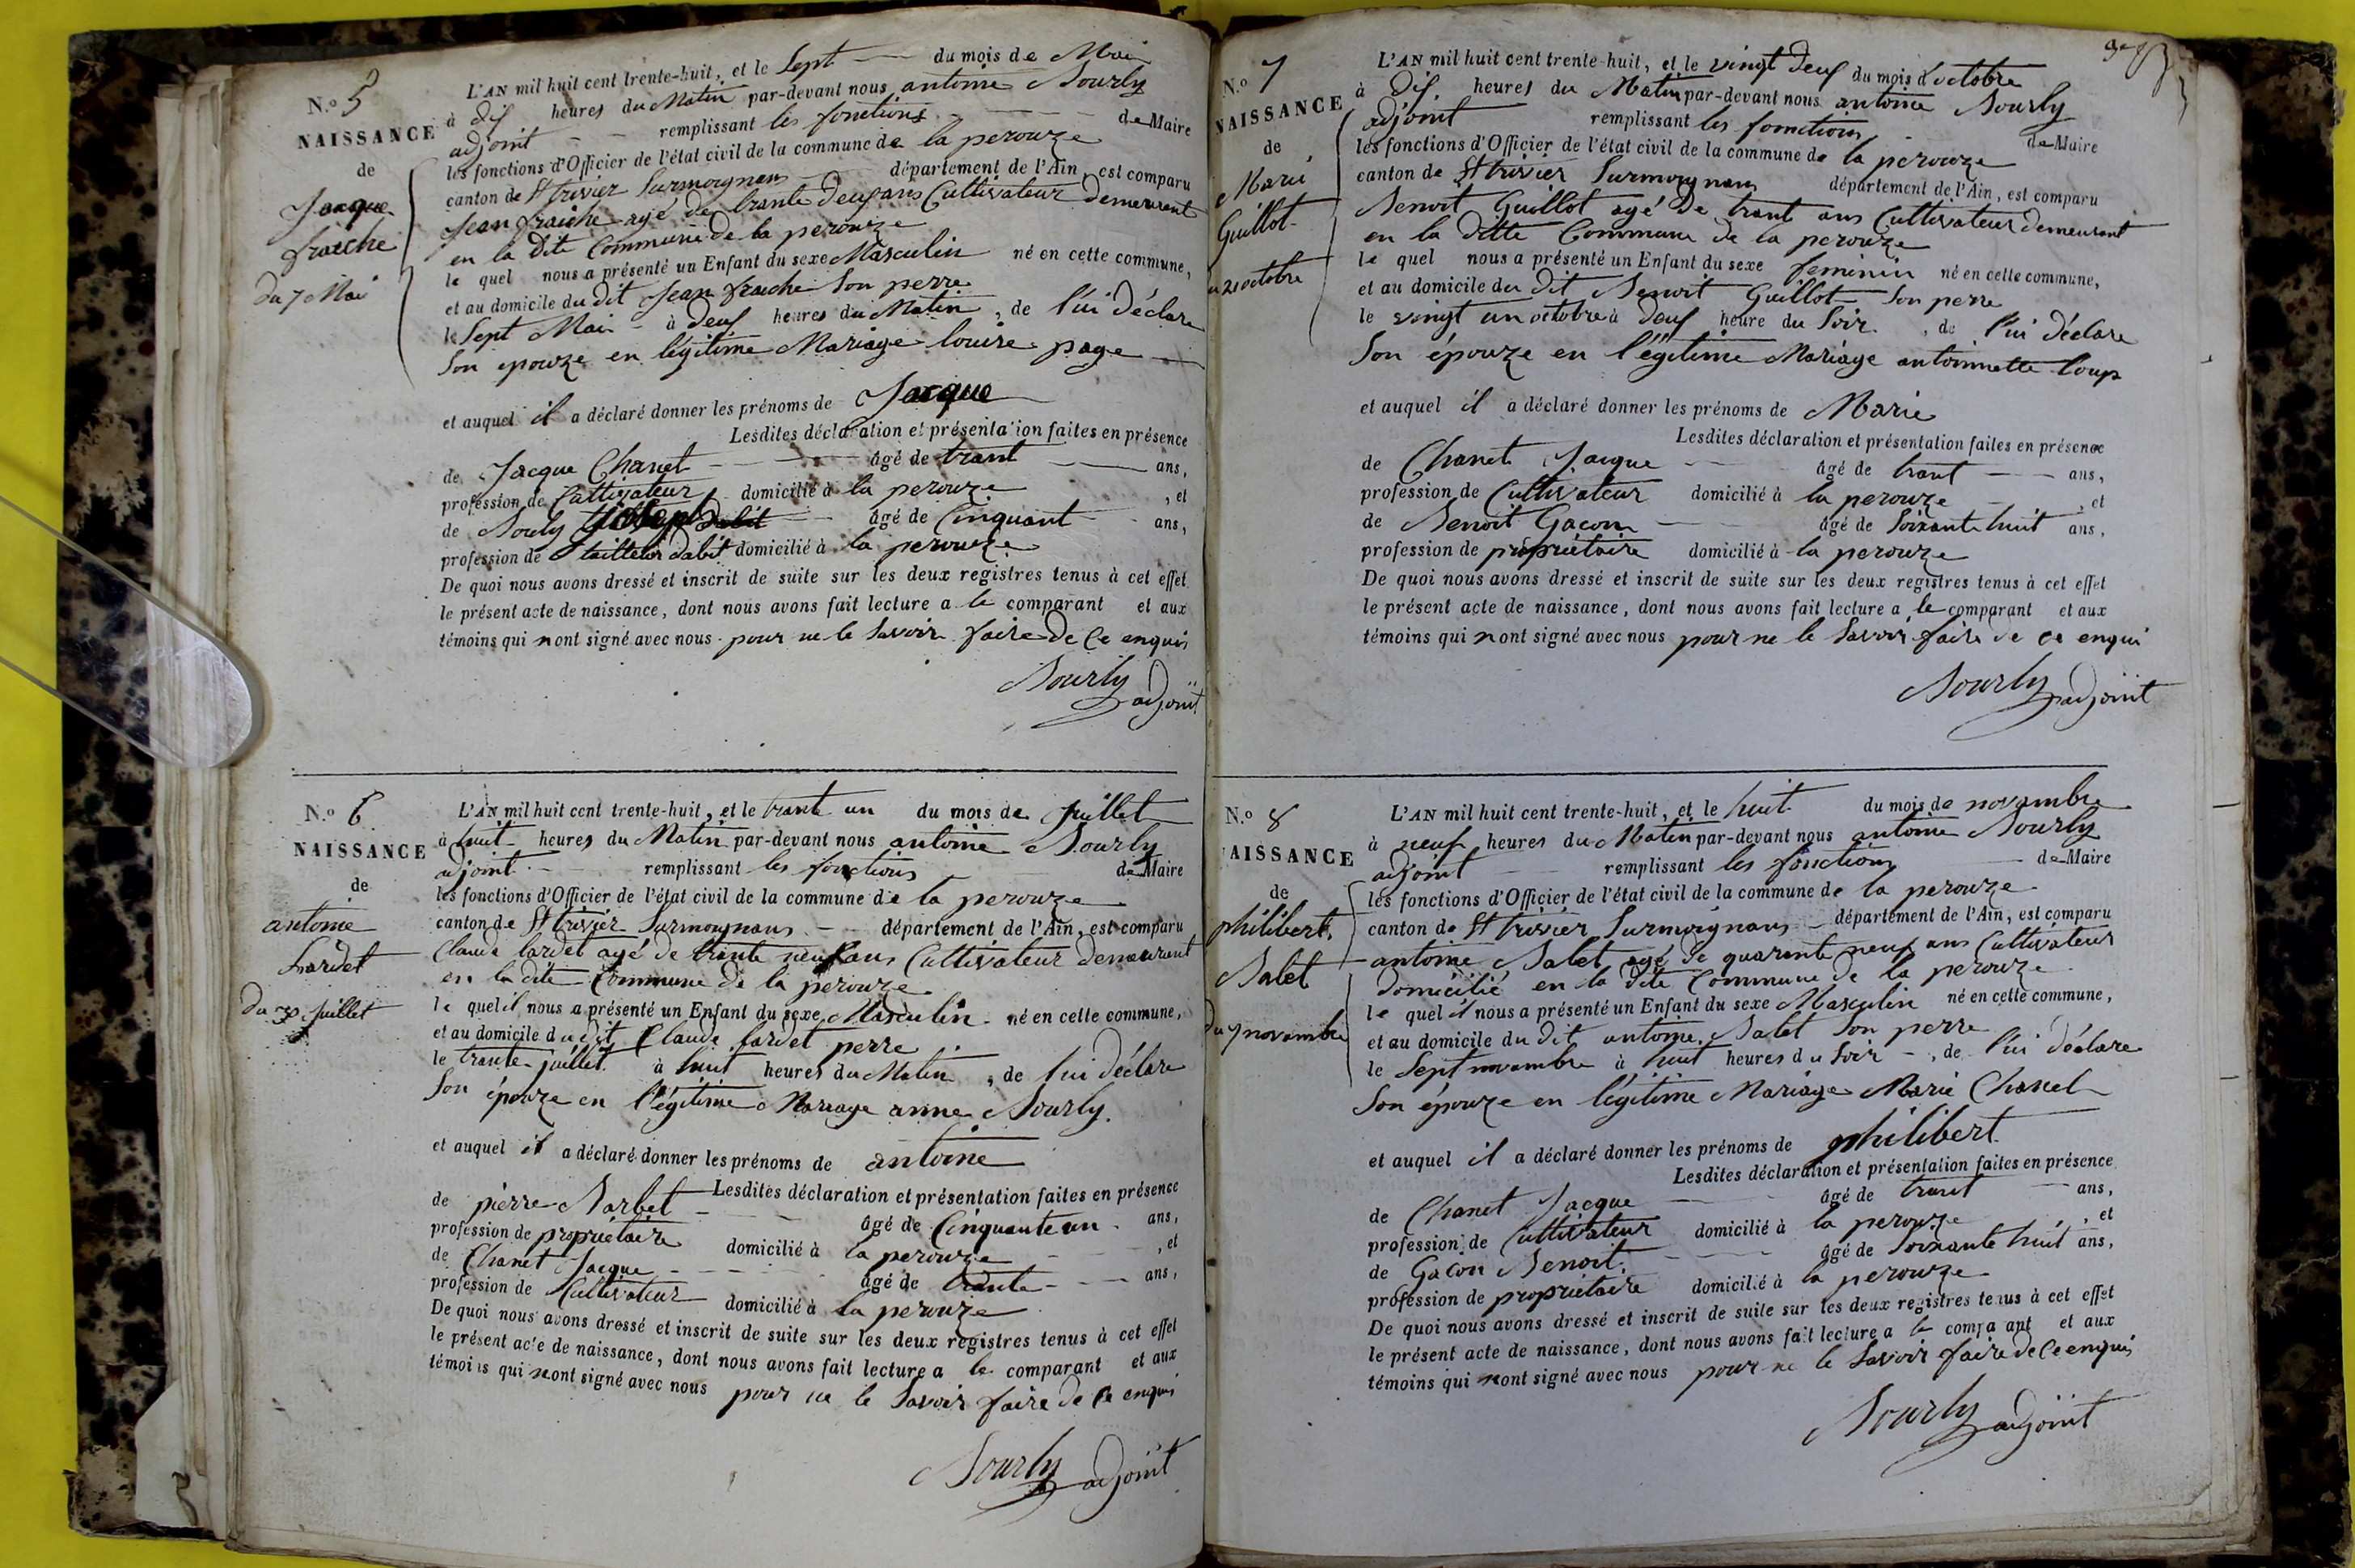 N.o 5
NAISSANCE
de
Jacque
fraiche
du 7 Mai
L'AN mil huit cent trente-huit, et le Sept du mois de Mai
à dix heures du Matin par-devant nous antoine Bourly
adjoint remplissant les fonctions de Maire
les fonctions d'Officier de l'état civil de la commune de la perouze
canton de St trivier Surmoignans département de l'Ain, est comparu
Jean fraiche agé de trante deux ans Cultivateur demeurant
en la dite Commune de la perouze
le quel nous a présenté un Enfant du sexe Masculin né en cette commune,
et au domicile du dit Jean fraiche Son perre
le Sept Mai à deux heures du Matin, de lui déclare
Son epouze en légitime Mariage louise page
et auquel il a déclaré donner les prénoms de Jacque
Lesdites déclaration et présentation faites en présence
de Jacque Chanet âgé de trant ans,
profession de Cultivateur domicilié à la perouze, et
de Bourly Joseph dabit âgé de Cinquant ans,
profession de taillieur dabit domicilié à la perouze
De quoi nous avons dressé et inscrit de suite sur les deux registres tenus à cet effet
le présent acte de naissance, dont nous avons fait lecture a le comparant et aux
témoins qui nont signé avec nous pour ne le Savoir faire de Ce enquis
Bourly
adjoint
N.o 6
NAISSANCE
de
antoine
Lardet
du 30 Juillet
L'AN mil huit cent trente-huit, et le trante un du mois de Juillet
à huit heures du Matin par-devant nous antoine Bourly
adjoint remplissant les fonctions de Maire
les fonctions d'Officier de l'état civil de la commune de la perouze
canton de St trivier Surmoignans département de l'Ain, est comparu
Claude lardet agé de trante neuf ans Cultivateur demeurant
en la dite Commune de la perouze
le quel il nous a présenté un Enfant du sexe Masculin né en cette commune,
et au domicile du dit Claude lardet perre
le trante juillet à huit heures du Matin, de lui déclare
Son épouze en légitime Mariage anne Bourly.
et auquel il a déclaré donner les prénoms de antoine
Lesdites déclaration et présentation faites en présence
de pierre Barbet âgé de Cinquante un ans,
profession de propriétaire domicilié à la perouze, et
de Chanet Jacque âgé de trante ans,
profession de Cultivateur domicilié à la perouze
De quoi nous avons dressé et inscrit de suite sur les deux registres tenus à cet effet
le présent acte de naissance, dont nous avons fait lecture a le comparant et aux
témoins qui nont signé avec nous pour ne le Savoir faire de Ce enquis
Bourly adjoint
N.o 7
NAISSANCE
de
Marie
Guillot
21 octobre
L'AN mil huit cent trente-huit, et le vingt deux du mois d'octobre
à dix heures du Matin par-devant nous antoine Bourly
adjoint remplissant les fonctions de Maire
les fonctions d'Officier de l'état civil de la commune de la perouze
canton de St trivier Surmoignans département de l'Ain, est comparu
Benoit Guillot agé de trant ans Cultivateur demeurant
en la ditte Commune de la perouze
le quel nous a présenté un Enfant du sexe feminin né en cette commune,
et au domicile du dit Benoit Guillot Son perre
le vingt un octobre à deux heure du Soir, de lui déclare
Son épouze en légitime Mariage antoinnette loup
et auquel il a déclaré donner les prénoms de Marie
Lesdites déclaration et présentation faites en présence
de Chanet Jacque âgé de trant ans,
profession de Cultivateur domicilié à la perouze, et
de Benoit Gacon âgé de Soixante huit ans,
profession de propriétaire domicilié à la perouze
De quoi nous avons dressé et inscrit de suite sur les deux registres tenus à cet effet
le présent acte de naissance, dont nous avons fait lecture a le comparant et aux
témoins qui nont signé avec nous pour ne le Savoir faire de ce enqui
Bourly adjoint
N.o 8
NAISSANCE
de
philibert
Balet
du 7 novembre
L'AN mil huit cent trente-huit, et le huit du mois de novembre
à neuf heures du Matin par-devant nous antoine Bourly
adjoint remplissant les fonctions de Maire
les fonctions d'Officier de l'état civil de la commune de la perouze
canton de St trivier Surmoignans département de l'Ain, est comparu
antoine Balet agé de quarente neuf ans Cultivateur
domicilié en la dite Commune de la perouze
le quel il nous a présenté un Enfant du sexe Masculin né en cette commune,
et au domicile du dit antoine Balet Son perre
le Sept novembre à huit heures du Soir, de lui déclare
Son épouze en légitime Mariage Marie Chanel
et auquel il a déclaré donner les prénoms de philibert
Lesdites déclaration et présentation faites en présence
de Chanet Jacque âgé de trant ans,
profession de Cultivateur domicilié à la perouze, et
de Gacon Benoit. âgé de Soixante huit ans,
profession de propriétaire domicilié à la perouze
De quoi nous avons dressé et inscrit de suite sur les deux registres tenus à cet effet
le présent acte de naissance, dont nous avons fait lecture a le comparant et aux
témoins qui nont signé avec nous pour ne le Savoir faire de Ce enquis
Bourly adjoint